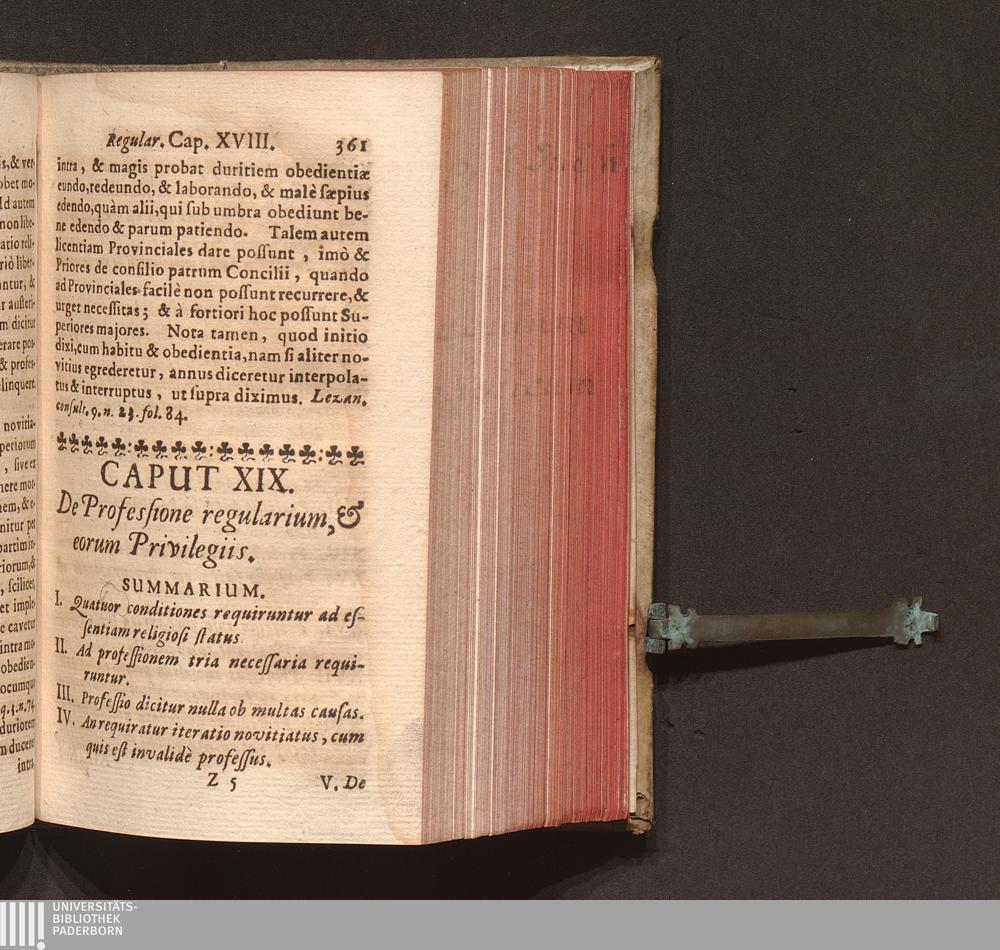 Regular. Cap. XVIII. 361
intra, & magis probat duritiem obedientiæ
eundo,redeundo, & laborando, & malè sæpius
edendo,quàm alii,qui sub umbra obediunt be-
ne edendo & parum patiendo. Talem autem
licentiam Provinciales dare possunt, imò &
Priores de consilio patrum Concilii, quando
ad Provinciales facilè non possunt recurrere,&
urget necessitas; & à fortiori hoc possunt Su-
periores majores. Nota tamen, quod initio
dixi,cum habitu & obedientia,nam si aliter no-
vitius egrederetur, annus diceretur interpola-
tus & interruptus, ut supra diximus. Lezan.
consult. 9. n. 23. fol. 84.
CAPUT XIX.
De Professione regularium, &
eorum Privilegiis.
SUMMARIUM.
I. Quatuor conditiones requiruntur ad es-
sentiam religiosi status
II. Ad professionem tria necessaria requi-
runtur.
III. Professio dicitur nulla ob multas causas.
IV. An requiratur iteratio novitiatus, cum
quis est invalidè professus.
Z 5 V. De
UNIVERSITÄTS-
BIBLIOTHEK
PADERBORN